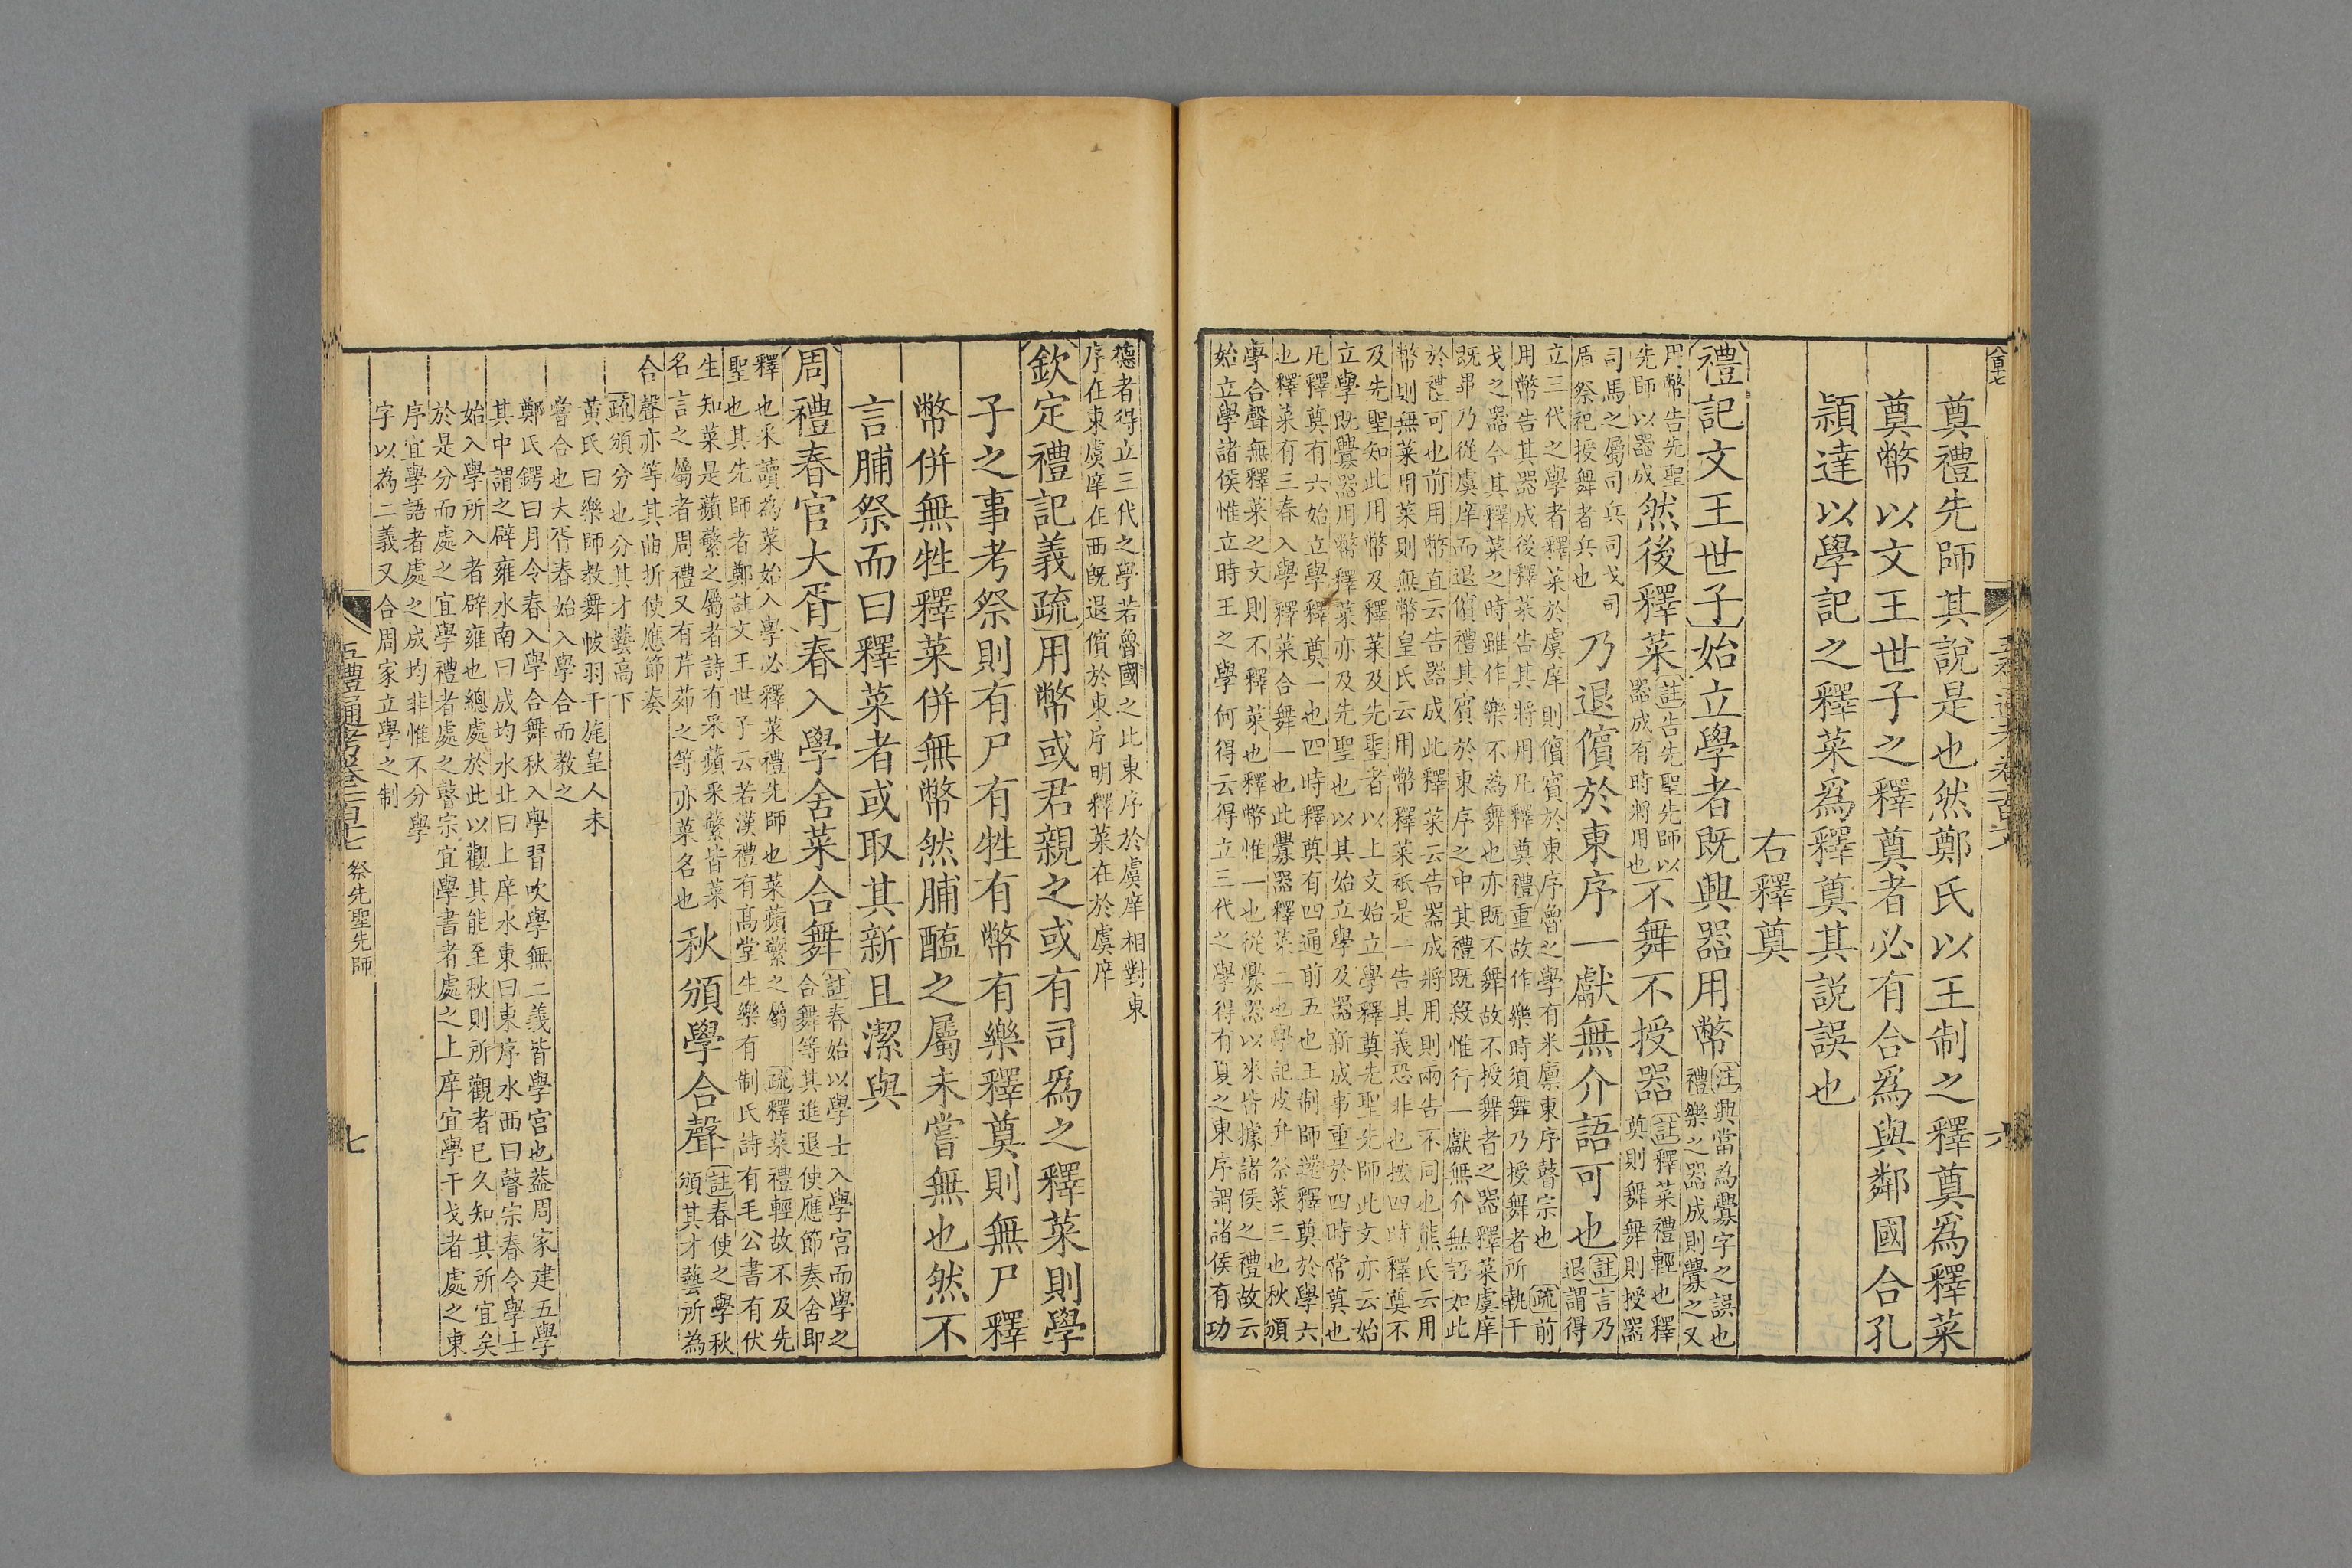 奠禮先師其説是也然鄭氏以王制之釋奠爲釋菜
奠幣以文王世子之釋奠者必有合爲與鄰國合孔
頴達以學記之釋菜爲釋奠其説誤也
右釋奠
禮記文王世子始立學者既興器用幣
注興當為釁字之誤也
禮樂之器成則釁之又
用幣告先聖
先師以器成
然後釋菜
註告先聖先師以
器成有時將用也
不舞不授器
註釋菜禮輕也釋
奠則舞舞則授器
司馬之屬司兵司戈司
盾祭祀授舞者兵也
乃退儐於東序一獻無介語可也
註言乃
退謂得
立三代之學者釋菜於虞庠則儐賓於東序魯之學有米廪東序瞽宗也
疏前
用幣告其器成後釋菜告其將用凡釋奠禮重故作樂時須舞乃授舞者所執干
戈之器今其釋菜之時雖作樂不為舞也亦既不舞故不授舞者之器釋菜虞庠
既畢乃從虞庠而退儐禮其賓於東序之中其禮既殺惟行一獻無介無語如此
於禮可也前用幣直云告器成此釋菜云告器成將用則兩告不同也熊氏云用
幣則無菜用菜則無幣皇氏云用幣釋菜祇是一告其義恐非也按四時釋奠不
及先聖知此用幣及釋菜及先聖者以上文始立學釋奠先聖先師此文亦云始
立學既釁器用幣釋菜亦及先聖也以其始立學及器新成事重於四時常奠也
凡釋奠有六始立學釋奠一也四時釋奠有四通前五也王制師還釋奠於學六
也釋菜有三春入學釋菜合舞一也此釁器釋菜二也學記皮弁祭菜三也秋頒
學合聲無釋菜之文則不釋菜也釋幣惟一也從釁器以來皆據諸侯之禮故云
始立學諸侯惟立時王之學何得云得立三代之學得有夏之東序謂諸侯有功
德者得立三代之學若魯國之比東序於虞庠相對東
序在東虞庠在西既退儐於東序明釋菜在於虞庠
欽定禮記義疏用幣或君親之或有司爲之釋菜則學
子之事考祭則有尸有牲有幣有樂釋奠則無尸釋
幣併無牲釋菜併無幣然脯醢之屬未嘗無也然不
言脯祭而曰釋菜者或取其新且潔與
周禮春官大胥春入學舍菜合舞
註春始以學士入學宫而學之
合舞等其進退使應節奏舍即
釋也采讀為菜始入學必釋菜禮先師也菜蘋蘩之屬
疏釋菜禮輕故不及先
聖也其先師者鄭註文王世子云若漢禮有髙堂生樂有制氏詩有毛公書有伏
生知菜是蘋蘩之屬者詩有采蘋采蘩皆菜
名言之屬者周禮又有芹茆之等亦菜名也
秋頒學合聲
註春使之學秋
頒其才藝所為
合聲亦等其曲折使應節奏
疏頒分也分其才藝高下
黄氏曰樂師教舞帗羽干旄皇人未
嘗合也大胥春始入學合而教之
鄭氏鍔曰月令春入學合舞秋入學習吹學無二義皆學宫也益周家建五學
其中謂之辟雍水南曰成均水北曰上庠水東曰東序水西曰瞽宗春令學士
始入學所入者辟雍也總處於此以觀其能至秋則所觀者已久知其所宜矣
於是分而處之宜學禮者處之瞽宗宜學書者處之上庠宜學干戈者處之東
序宜學語者處之成均非惟不分學
字以為二義又合周家立學之制
五禮通考卷一百十七 祭先聖先師
七